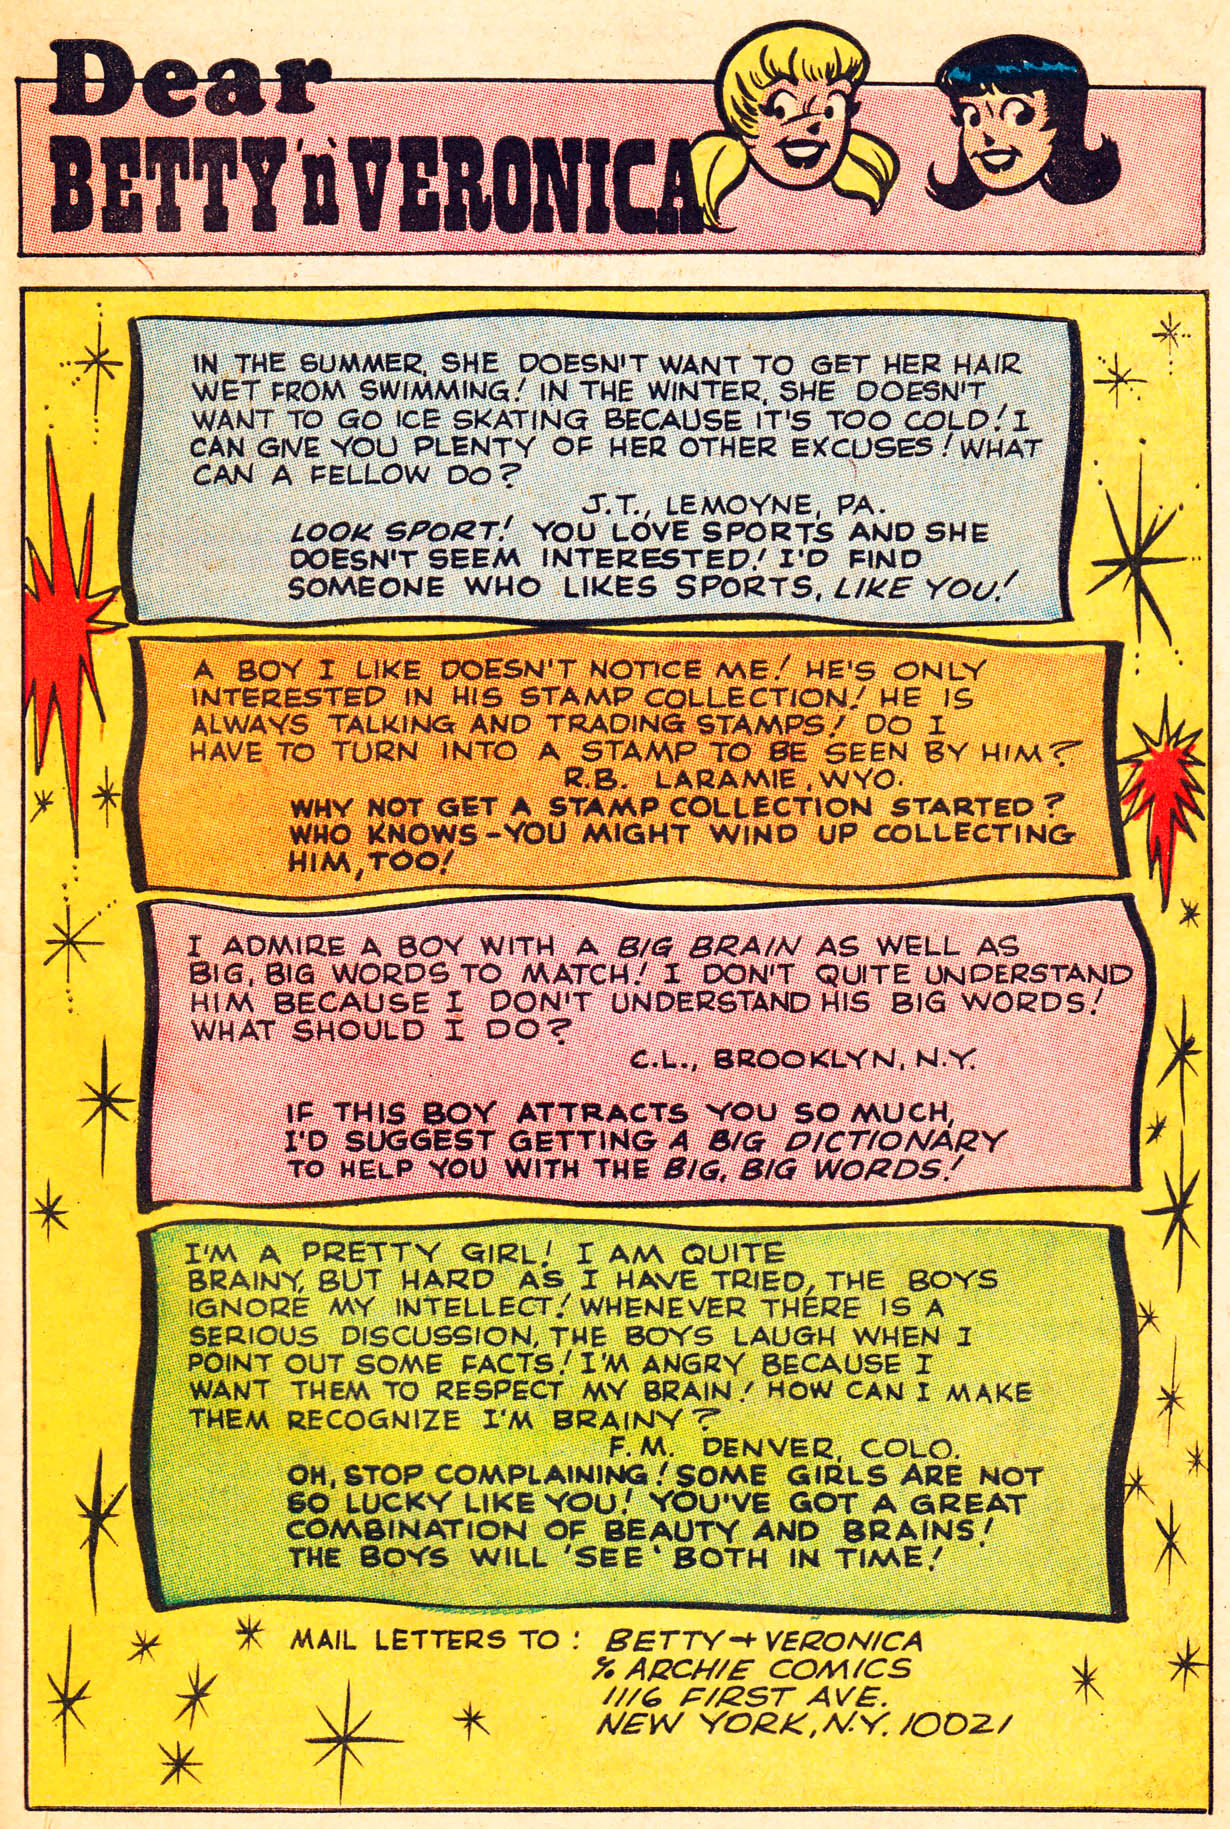 Dear
BETTY 'n' VERONICA
IN THE SUMMER, SHE DOESN'T WANT TO GET HER HAIR
WET FROM SWIMMING! IN THE WINTER, SHE DOESN'T
WANT TO GO ICE SKATING BECAUSE IT'S TOO COLD! I
CAN GIVE YOU PLENTY OF HER OTHER EXCUSES! WHAT
CAN A FELLOW DO?
J.T., LEMOYNE, PA.
LOOK SPORT! YOU LOVE SPORTS AND SHE
DOESN'T SEEM INTERESTED! I'D FIND
SOMEONE WHO LIKES SPORTS, LIKE YOU!
A BOY I LIKE DOESN'T NOTICE ME! HE'S ONLY
INTERESTED IN HIS STAMP COLLECTION! HE IS
ALWAYS TALKING AND TRADING STAMPS! DO I
HAVE TO TURN INTO A STAMP TO BE SEEN BY HIM?
R.B. LARAMIE, WYO.
WHY NOT GET A STAMP COLLECTION STARTED?
WHO KNOWS-YOU MIGHT WIND UP COLLECTING
HIM, TOO!
I ADMIRE A BOY WITH A BIG BRAIN AS WELL AS
BIG, BIG WORDS TO MATCH! I DON'T QUITE UNDERSTAND
HIM BECAUSE I DON'T UNDERSTAND HIS BIG WORDS!
WHAT SHOULD I DO?
C.L., BROOKLYN, N.Y.
IF THIS BOY ATTRACTS YOU SO MUCH,
I'D SUGGEST GETTING A BIG DICTIONARY
TO HELP YOU WITH THE BIG, BIG WORDS!
I'M A PRETTY GIRL! I AM QUITE
BRAINY, BUT HARD AS I HAVE TRIED, THE BOYS
IGNORE MY INTELLECT! WHENEVER THERE IS A
SERIOUS DISCUSSION, THE BOYS LAUGH WHEN I
POINT OUT SOME FACTS! I'M ANGRY BECAUSE I
WANT THEM TO RESPECT MY BRAIN! HOW CAN I MAKE
THEM RECOGNIZE I'M BRAINY?
F.M. DENVER, COLO.
OH, STOP COMPLAINING! SOME GIRLS ARE NOT
SO LUCKY LIKE YOU! YOU'VE GOT A GREAT
COMBINATION OF BEAUTY AND BRAINS!
THE BOYS WILL 'SEE' BOTH IN TIME!
MAIL LETTERS TO: BETTY + VERONICA
℅ ARCHIE COMICS
1116 FIRST AVE.
NEW YORK, N.Y. 10021